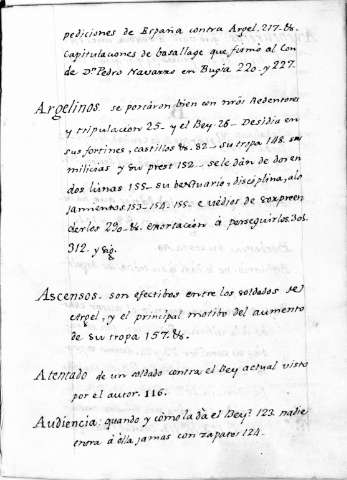 pediciones de España contra Argel. 217. &c.
Capitulaciones de basallage que firmó al Con
de Dn. Pedro Navarro en Bugia 220. y 227.
Argelinos. se portáron bien con nrós Redentores
y tripulacion 25. y el Bey. 26. Desidia en
sus fortines, castillos &c. 82. su tropa 148. sus
milicias y su prest 152. se le dàn de dos en
dos lunas 155. su bestuario, disciplina, alo
jamientos. 153. 154. 155. e medios de sorpreen
derles 290. &c. exortacion á perseguirlos. 308.
312. y sig.
Ascensos. son efectibos entre los soldados de
Argel, y el principal motibo del aumento
de su tropa 157. &c.
Atentado de un soldado contra el Bey actual visto
por el autor. 116.
Audiencia: quando y cómo la dà el Bey? 123. nadie
entra á élla jamas con zapatos 124.